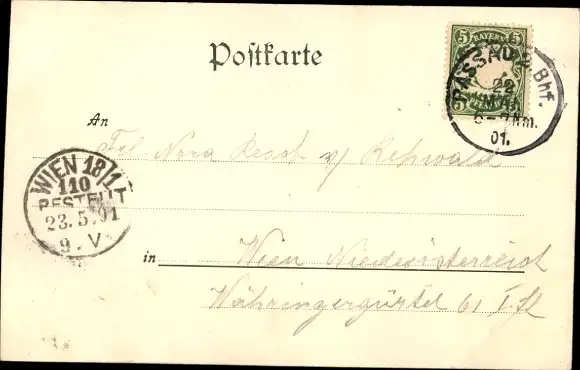 5 BAYERN 5
PASSAU 2 Bhf.
22
MAI
6-7 Nm.
01.
Postkarte
An
Frl Nora v/ Rehwald
WIEN 18/1
110
BESTELLT
23.5.01
9.V
in Wien Niederösterreich
Währingergürtel 61 I. St